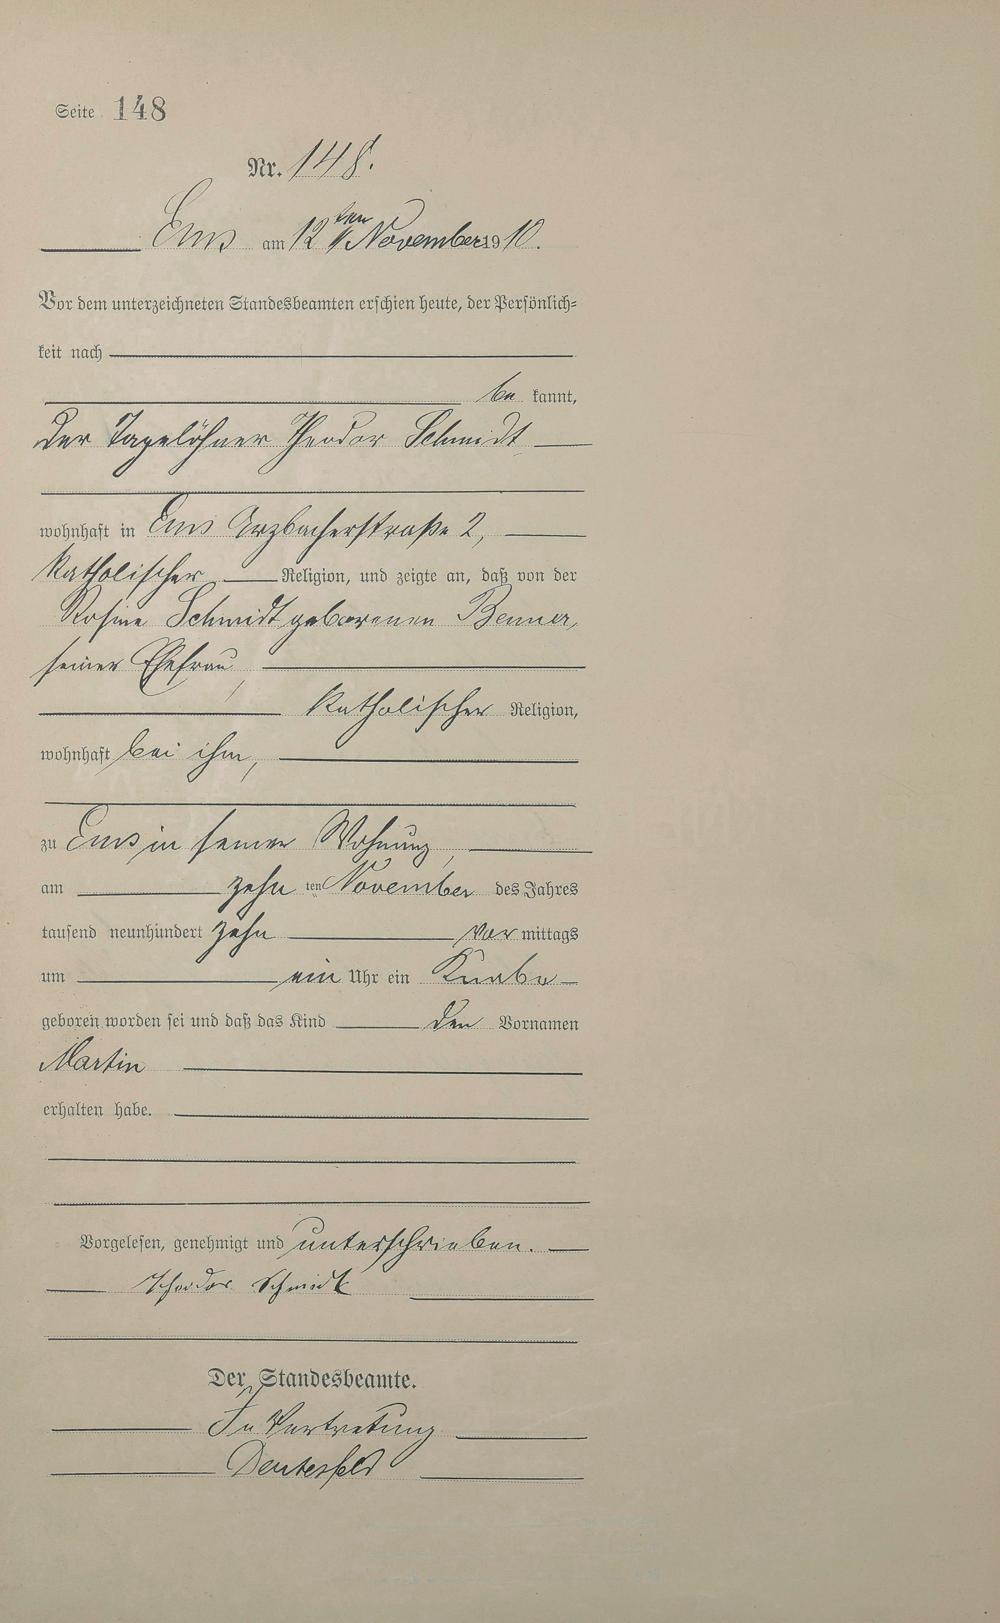 Seite 148
Nr. 148.
Ems am 12ten November 1910.
Vor dem unterzeichneten Standesbeamten erschien heute, der Persönlich=
keit nach
be kannt,
der Tagelöhner Theodor Schmidt
wohnhaft in Ems Arzbacherstraße 2,
katholischer Religion, und zeigte an, daß von der
Rosine Schmidt geborenen Benner,
seiner Ehefrau,
katholischer Religion,
wohnhaft bei ihm,
zu Ems in seiner Wohnung,
am zehn ten November des Jahres
tausend neunhundert zehn vor mittags
um ein Uhr ein Knabe
geboren worden sei und daß das Kind den Vornamen
Martin
erhalten habe.
Vorgelesen, genehmigt und unterschrieben.
Theodor Schmidt
Der Standesbeamte.
In Vertretung